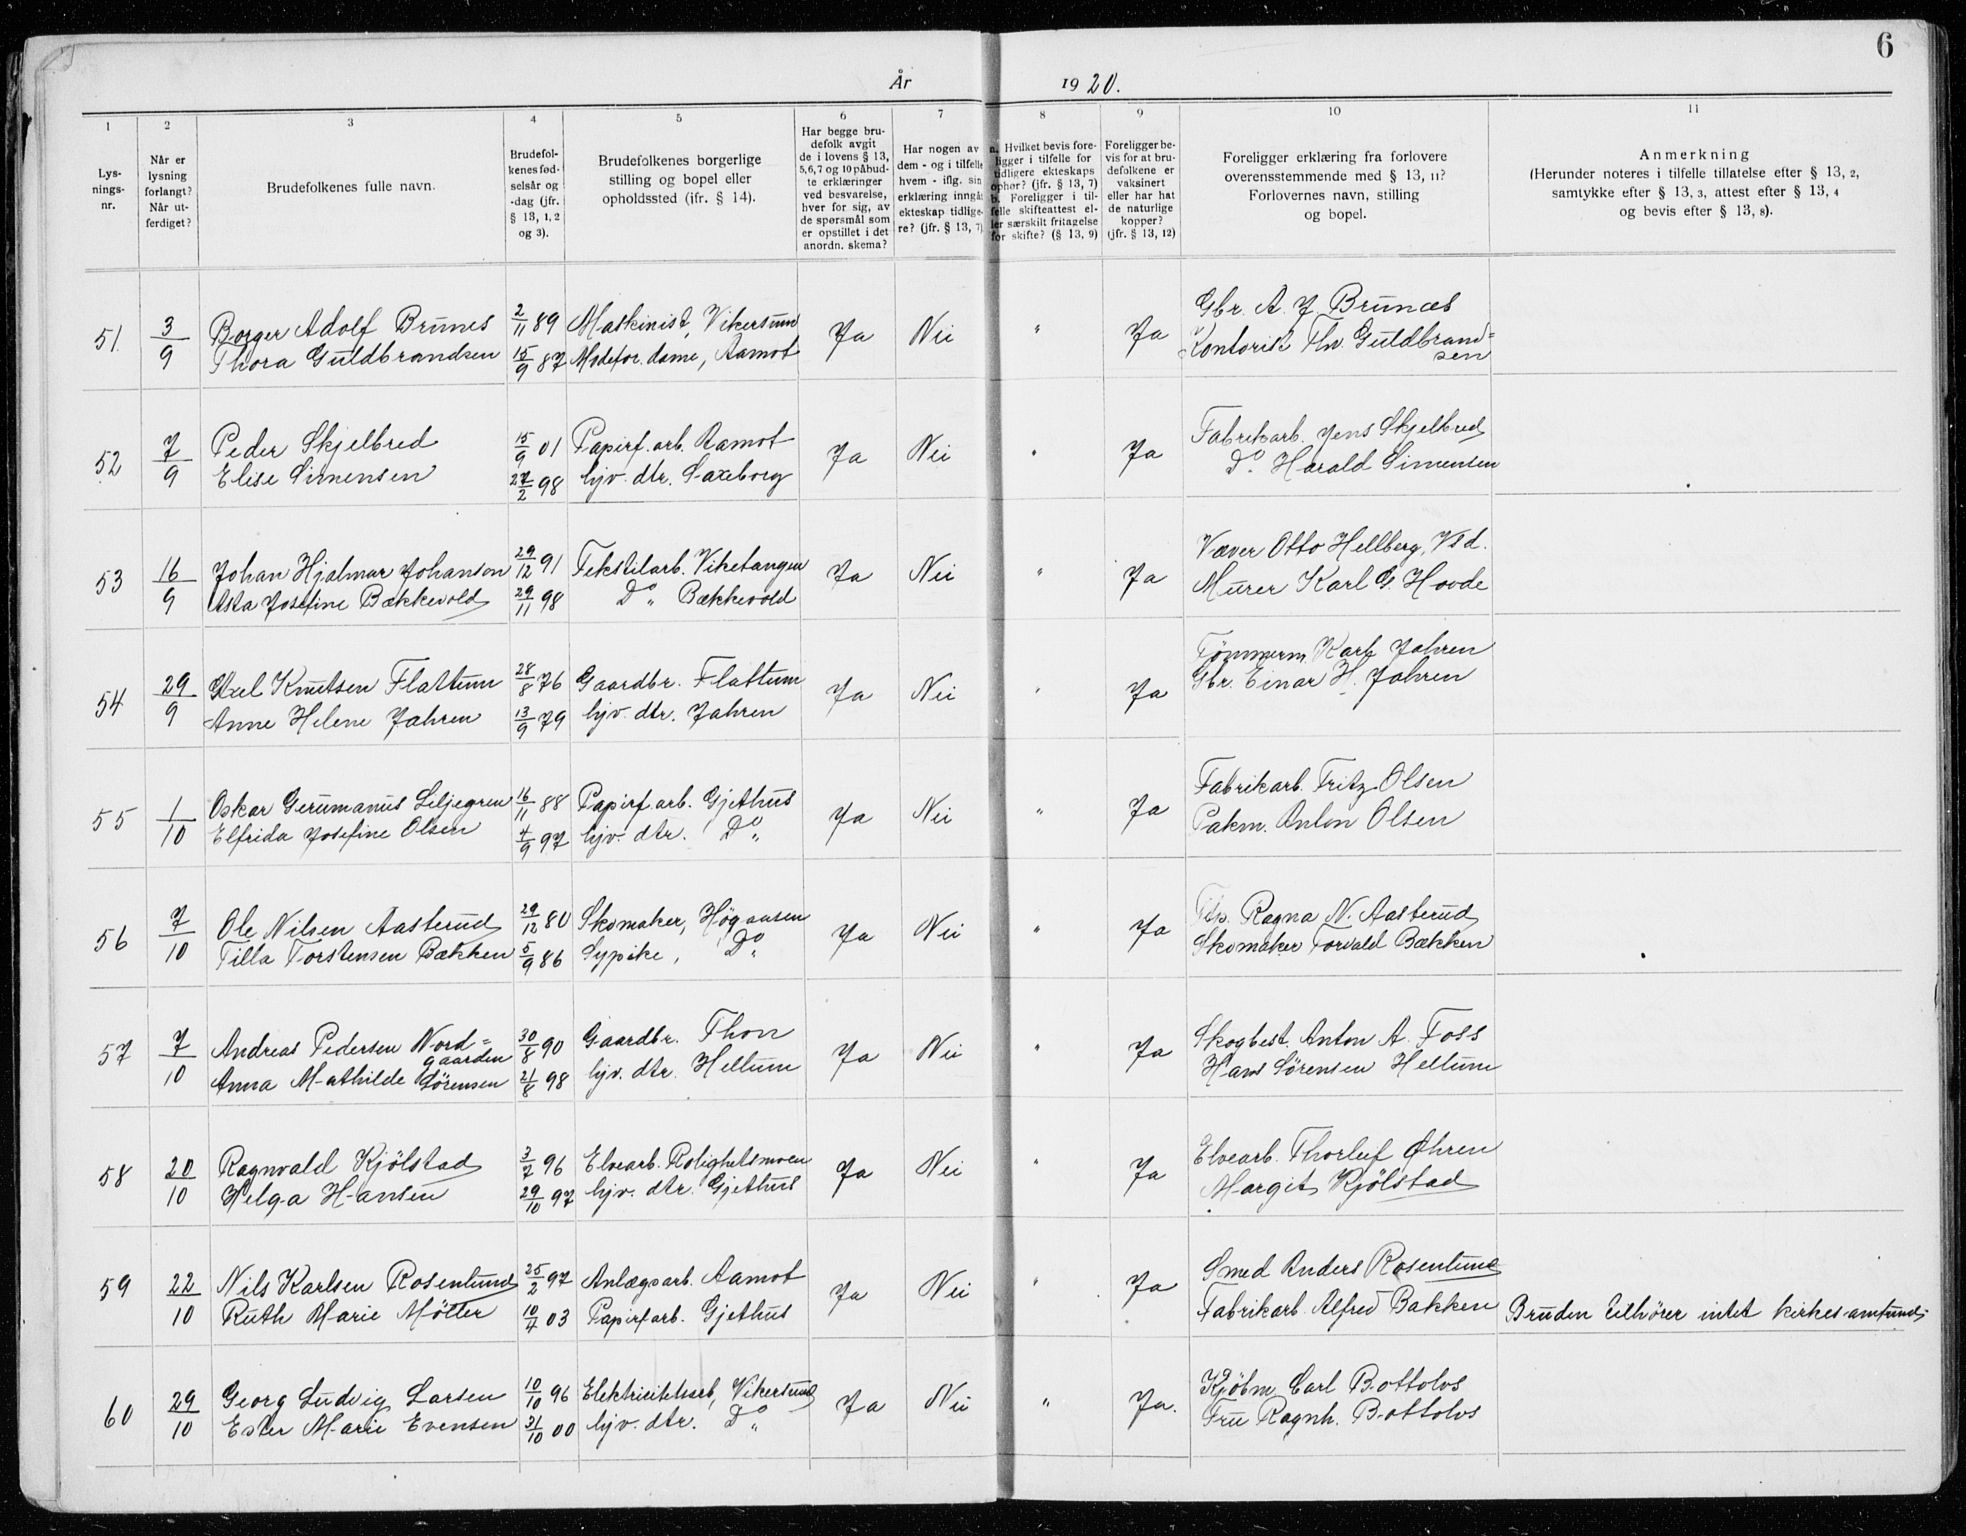 6
År 1920.
1 2 3 4 5 6 7 8 9 10 11
Lys-
nings-
nr.
Når er
lysning
forlangt?
Når ut-
ferdiget?
Brudefolkenes fulle navn.
Brudefol-
kenes fød-
selsår og
-dag (jfr.
§ 13, 1, 2
og 3).
Brudefolkenes borgerlige
stilling og bopel eller
opholdssted (ifr. § 14).
Har begge bru-
defolk avgit
de i lovens § 13,
5, 6, 7 og 10 påbud-
te erklæringer
ved besvarelse,
hver for sig, av
de spørsmål som
er opstillet i det
anordn. skema?
Har nogen av
dem - og i tilfelle
hvem - iflg. sin
erklæring inngåt
ekteskap tidlige-
re? (jfr. § 13, 7)
a. Hvilket bevis fore-
ligger i tilfelle for
tidligere ekteskaps
ophør? (jfr. § 13, 7)
b. Foreligger i til-
felle skifteattest el-
ler særskilt fritagelse
for skifte? (§ 13, 9)
Foreligger be-
vis for at bru-
defolkene er
vaksinert
eller har hat
de naturlige
kopper?
(jfr. § 13, 12)
Foreligger erklæring fra forlovere
overensstemmende med § 13, 11?
Forlovernes navn, stilling
og bopel.
Anmerkning
(Herunder noteres i tilfelle tillatelse efter § 13, 2,
samtykke efter § 13, 3, attest efter § 13, 4
og bevis efter § 13, 8).
51 3/9 Borger Adolf Brunes 2/11 89 Maskinist, Vikersund Ja Nei " Ja Gbr. A. J. Brunæs
Thora Guldbrandsen 15/9 87 Modefor. dame, Aamot Kontorist Th. Guldbrand=
sen
52 7/9 Peder Skjelbred 15/9 01 Papirf. arb. Aamot Ja Nei " Ja Fabrikarb. Jens Skjelbred
Elise Simensen 27/2 98 hjv. dtr. Saxeborg Do. Harald Simensen
53 16/9 Johan Hjalmar Johanson 29/12 91 Tekstilarb. Viketangen Ja Nei " Ja Væver Otto Hellberg, Vsd.
Asta Josefine Bækkevold 29/11 98 Do " Bækkevold Murer Karl G. Hovde
54 29/9 Axel Knutsen Flattum 28/8 76 Gaardbr. Flattum Ja Nei " Ja Tømmerm. Karl Jahren
Anne Helene Jahren 13/9 79 hjv. dtr. Jahren Gbr. Einar H. Jahren
55 1/10 Oskar Gerumanus Liljegren 16/11 88 Papirf. arb. Gjethus Ja Nei " Ja Fabrikarb. Fritz Olsen
Elfrida Josefine Olsen 4/9 97 hjv. dtr. Do " Pakm. Anton Olsen
56 7/10 Ole Nilsen Aasterud 29/12 80 Skomaker, Høgaasen Ja Nei " Ja Ragna N. Aasterud
Tilla Torstensen Bækken 5/9 86 Sypike, Do " Skomaker Torvald Bækken
57 7/10 Andreas Pedersen Nord=
gaarden 30/8 90 Gaardbr. Thon Ja Nei " Ja Skogbest. Anton A. Foss
Anna Mathilde Sørensen 21/8 98 hjv. dtr. Hellum Hans Sørensen Hellum
58 20/10 Ragnvald Kjølstad 3/7 96 Elvearb. Rolighetsmoen Ja Nei " Ja Elvearb. Thorleif Øhren
Helga Hansen 29/10 97 hjv. dtr. Gjethus Margit Kjølstad
59 22/10 Nils Karlsen Rosenlund 25/2 97 Anlægsarb. Aamot Ja Nei " Ja Smed Anders Rosenlund
Ruth Marie Møller 10/4 03 Papirfarb. Gjethus Fabrikarb. Alfred Bakken Bruden tilhører intet kirkesamfund
60 29/10 Georg Ludvig Larsen 10/10 96 Elektricitetsarb, Vikersund Ja Nei " Ja. Kjøbm. Carl Bottolvs
Ester Marie Evensen 31/10 00 hjv. dtr. Do " Fru Ragnh. Bottolvs